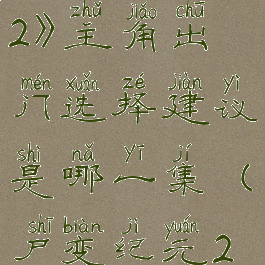 zhǔ jiǎo chū
2》主角出
mén xuǎn zé jiàn yì
门选择建议
shì nǎ yī jí
是哪一集(
shī biàn jì yuán
尸变纪元2